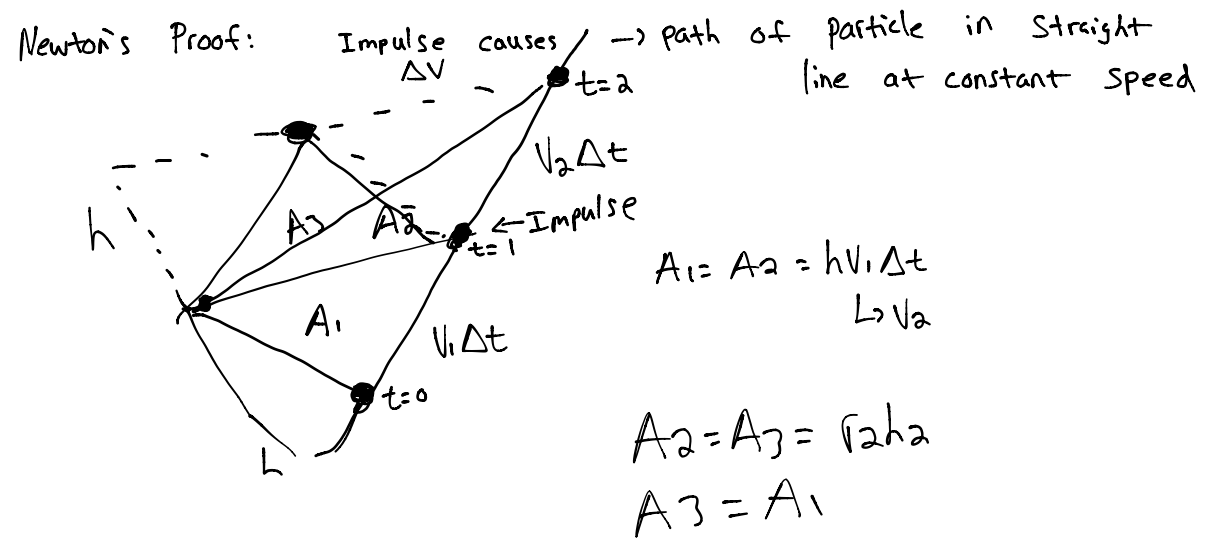 Newton's Proof:
Impulse causes
ΔV
→ path of particle in straight
line at constant speed
t=2
V₂Δt
h
A3
A2
←Impulse
t=1
A₁
V₁Δt
t=0
h
A₁ = A2 = hV₁Δt
↳ V₂
A2 = A3 = r2h2
A3 = A1